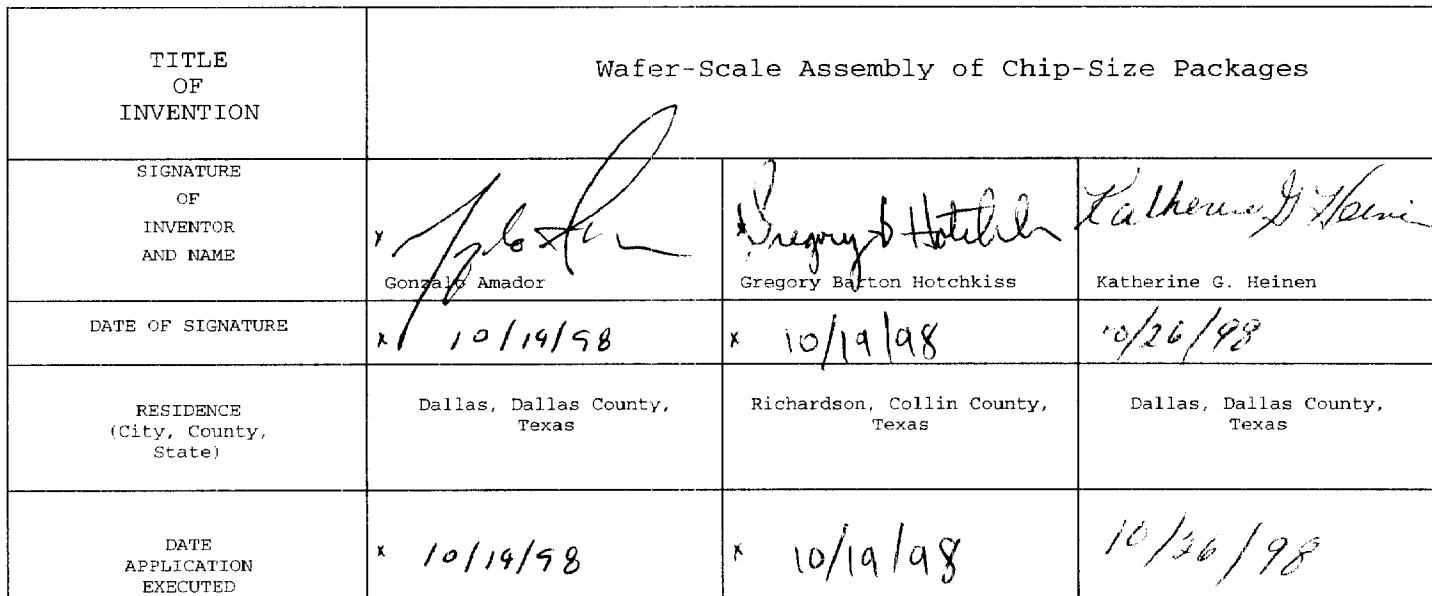 TITLE
OF
INVENTION
Wafer-Scale Assembly of Chip-Size Packages
SIGNATURE
OF
INVENTOR
AND NAME
x
x Gregory B Hotchkiss
Katherine G Heinen
Gonzalo Amador
Gregory Barton Hotchkiss
Katherine G. Heinen
DATE OF SIGNATURE
x 10/19/98
x 10/19/98
10/26/98
RESIDENCE
(City, County,
State)
Dallas, Dallas County,
Texas
Richardson, Collin County,
Texas
Dallas, Dallas County,
Texas
DATE
APPLICATION
EXECUTED
x 10/19/98
x 10/19/98
10/26/98